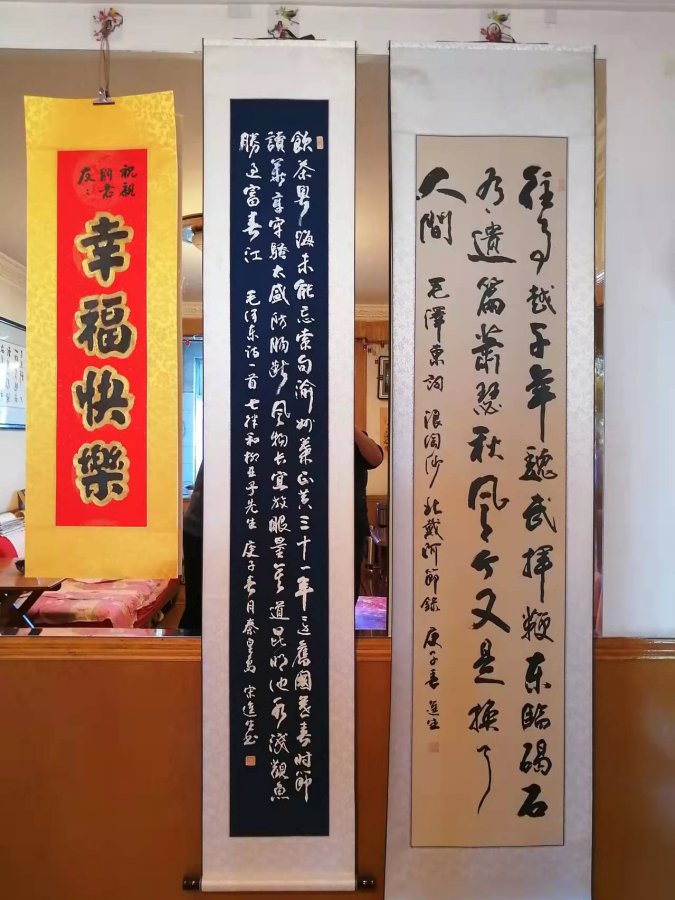 祝親
朋老
友：
幸福快樂
飲茶粵海未能忘索句渝州葉正黃三十一年還舊國暮春时節
讀華章牢騷太盛防腸斷風物长宜放眼量莫道昆明池水淺觀魚
勝过富春江 毛泽东诗一首 七律和柳亚子先生 庚子春月秦皇島 宋進生书
往事越千年魏武揮鞭東臨碣石
有遺篇蕭瑟秋風今又是換了
人間 毛澤東詞 浪淘沙 北戴河節錄 庚子春 進生